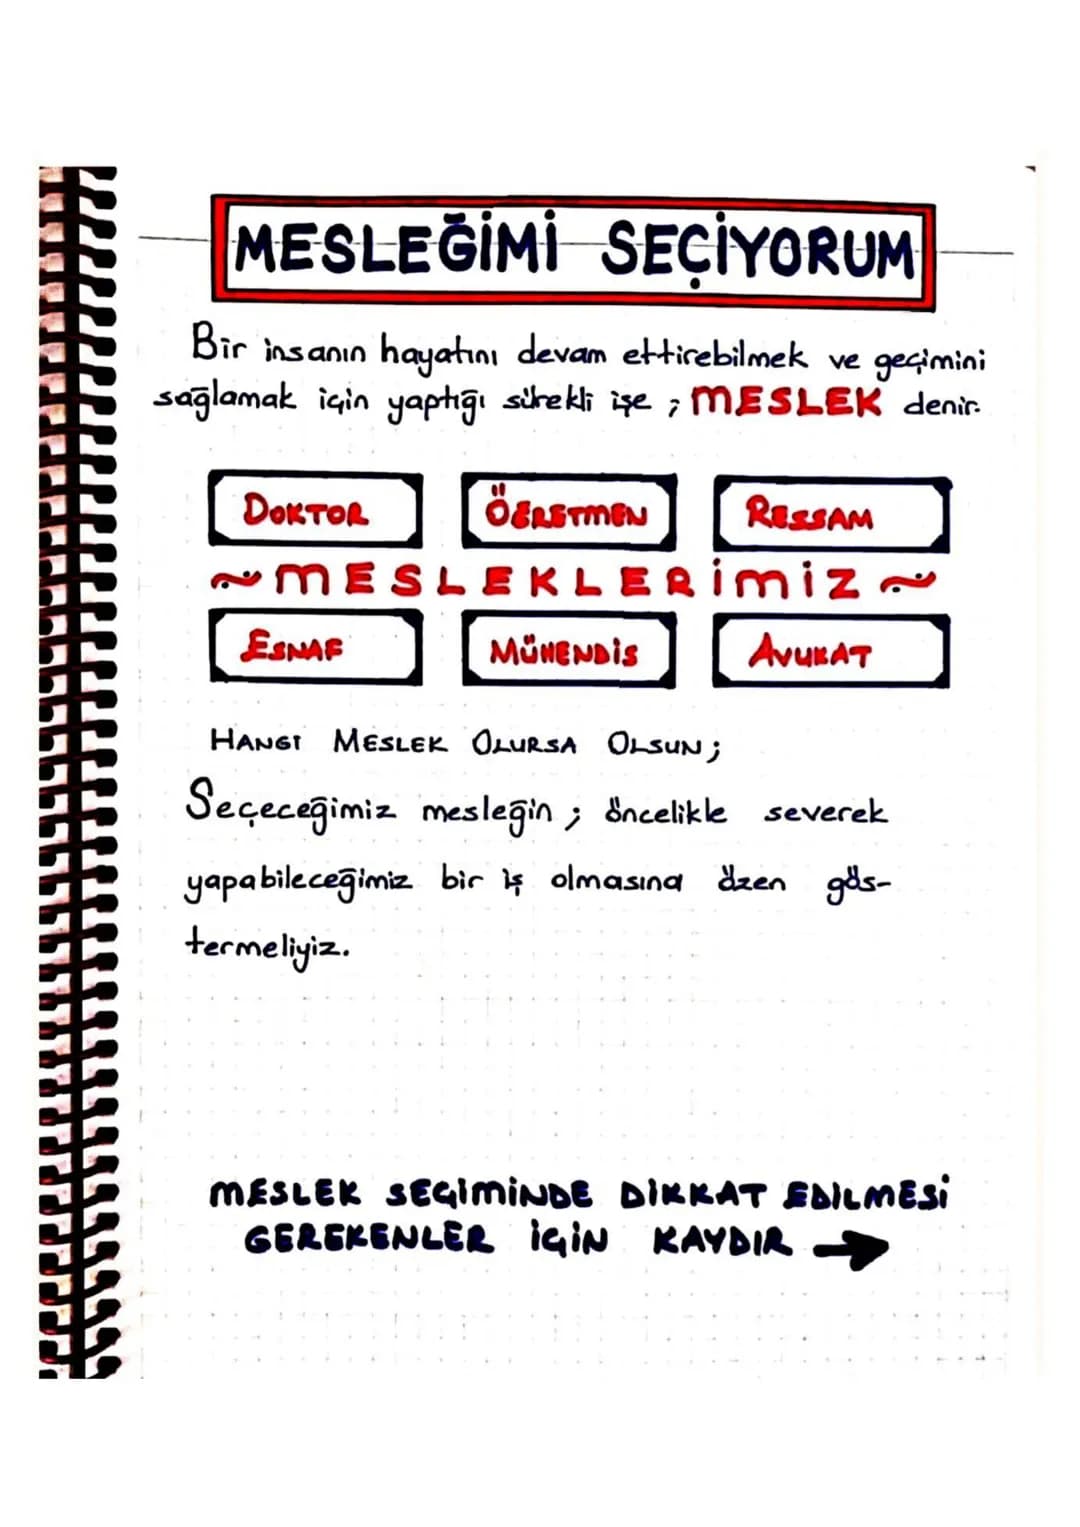 MESLEĞİMİ SEÇİYORUM
Bir insanın hayatını devam ettirebilmek ve geçimini
sağlamak için yaptığı sürekli işe ; MESLEK denir.
DOKTOR ÖĞRETMEN RESSAM
~MESLEKLERİMİZ~
ESNAF MÜHENDİS AVUKAT
HANGİ MESLEK OLURSA OLSUN ;
Seçeceğimiz mesleğin ; öncelikle severek
yapabileceğimiz bir iş olmasına özen gös-
termeliyiz.
MESLEK SEÇİMİNDE DİKKAT EDİLMESİ
GEREKENLER İÇİN KAYDIR →